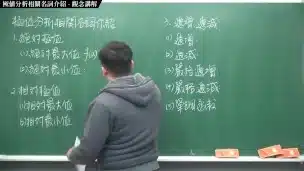 極值分析相關名詞介紹 - 觀念講解
極值分析相關名詞介紹
1. 絕對極值
(1) 絕對最大值
(2) 絕對最小值
2. 相對極值
(1) 相對最大值
(2) 相對最小值
3. 遞增、遞減
(1) 遞增
(2) 遞減
(3) 嚴格遞增
(4) 嚴格遞減
(5) 單調函數